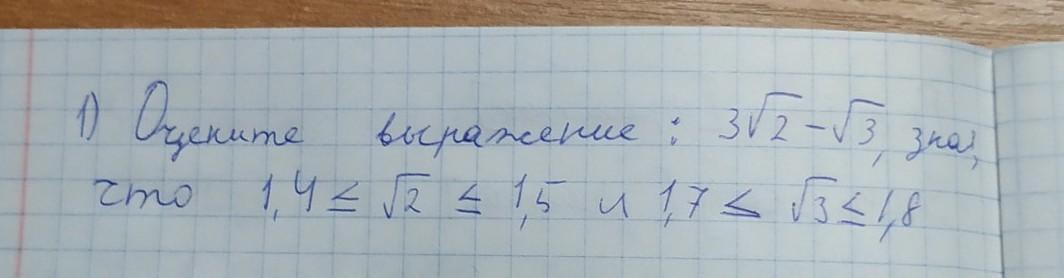 1) Оцените выражение: 3√2 - √3, зная,
что 1,4 ≤ √2 ≤ 1,5 и 1,7 ≤ √3 ≤ 1,8